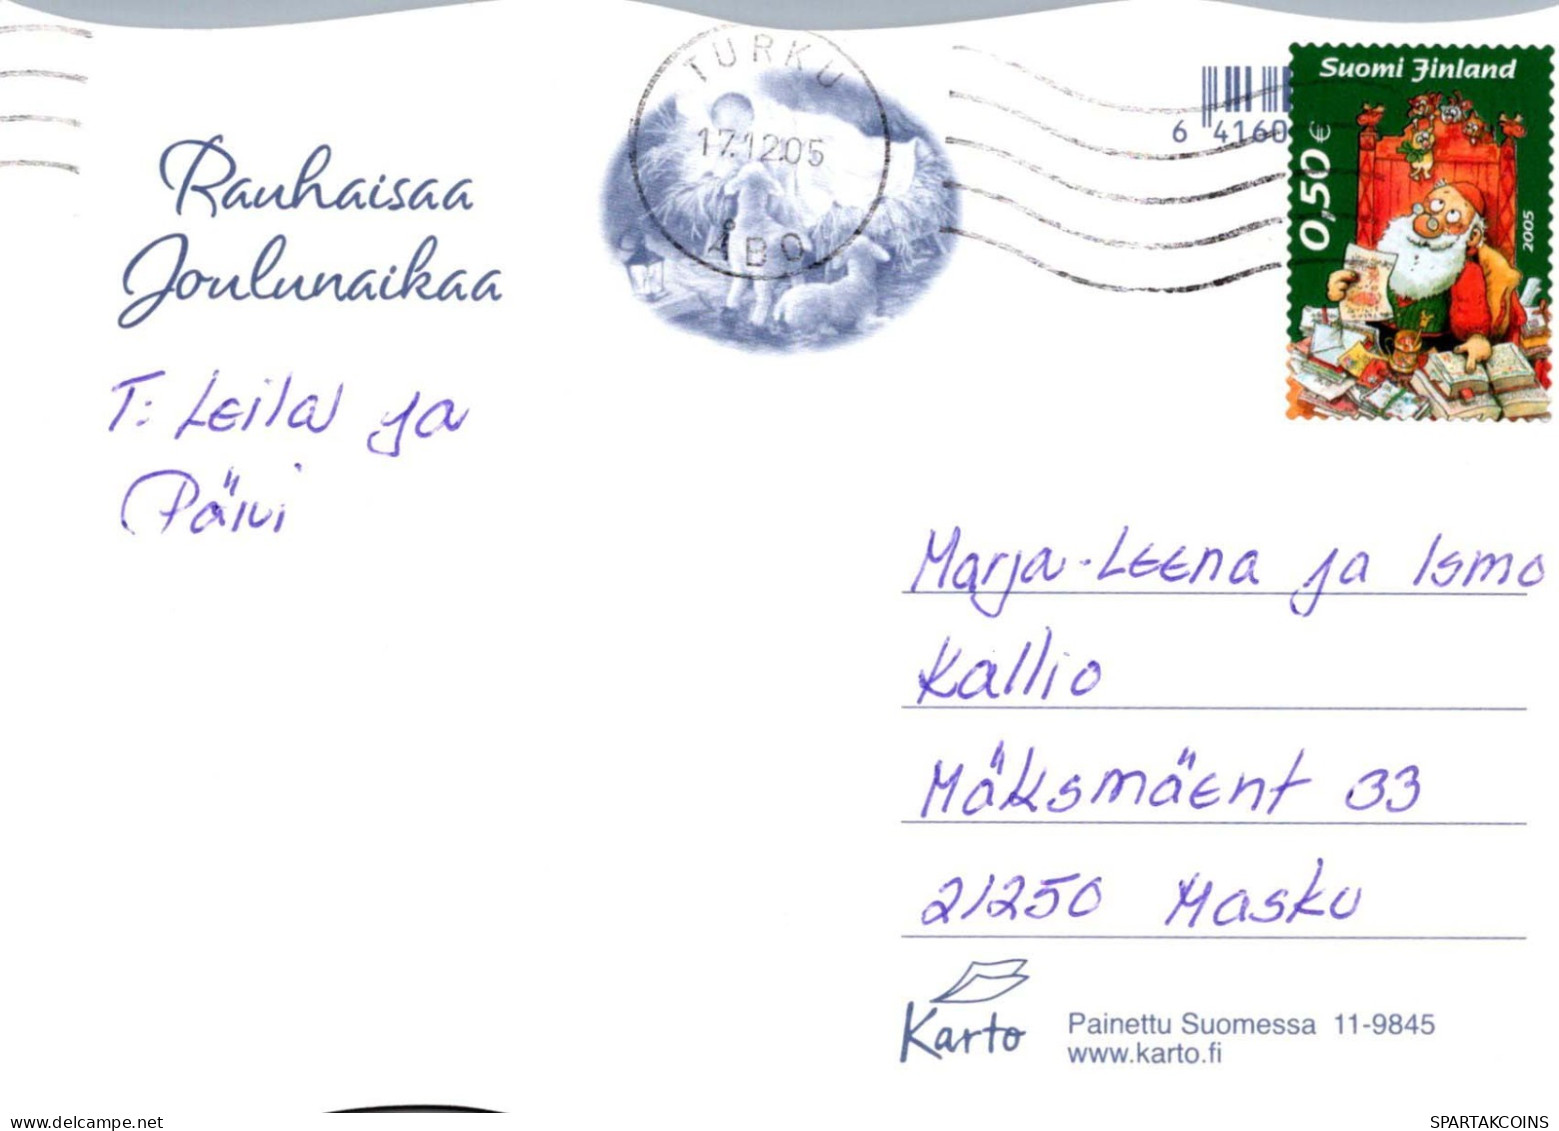 Rauhaisaa
Joulunaikaa
T: Leila ja
Päivi
TURKU
17.12.05
ÅBO
6 4160
Suomi Finland
0,50 €
2005
Marja-Leena ja Ismo
Kallio
Mäksmäent 33
21250 Masku
Karto
Painettu Suomessa 11-9845
www.karto.fi
www.delcampe.net
SPARTAKCOINS